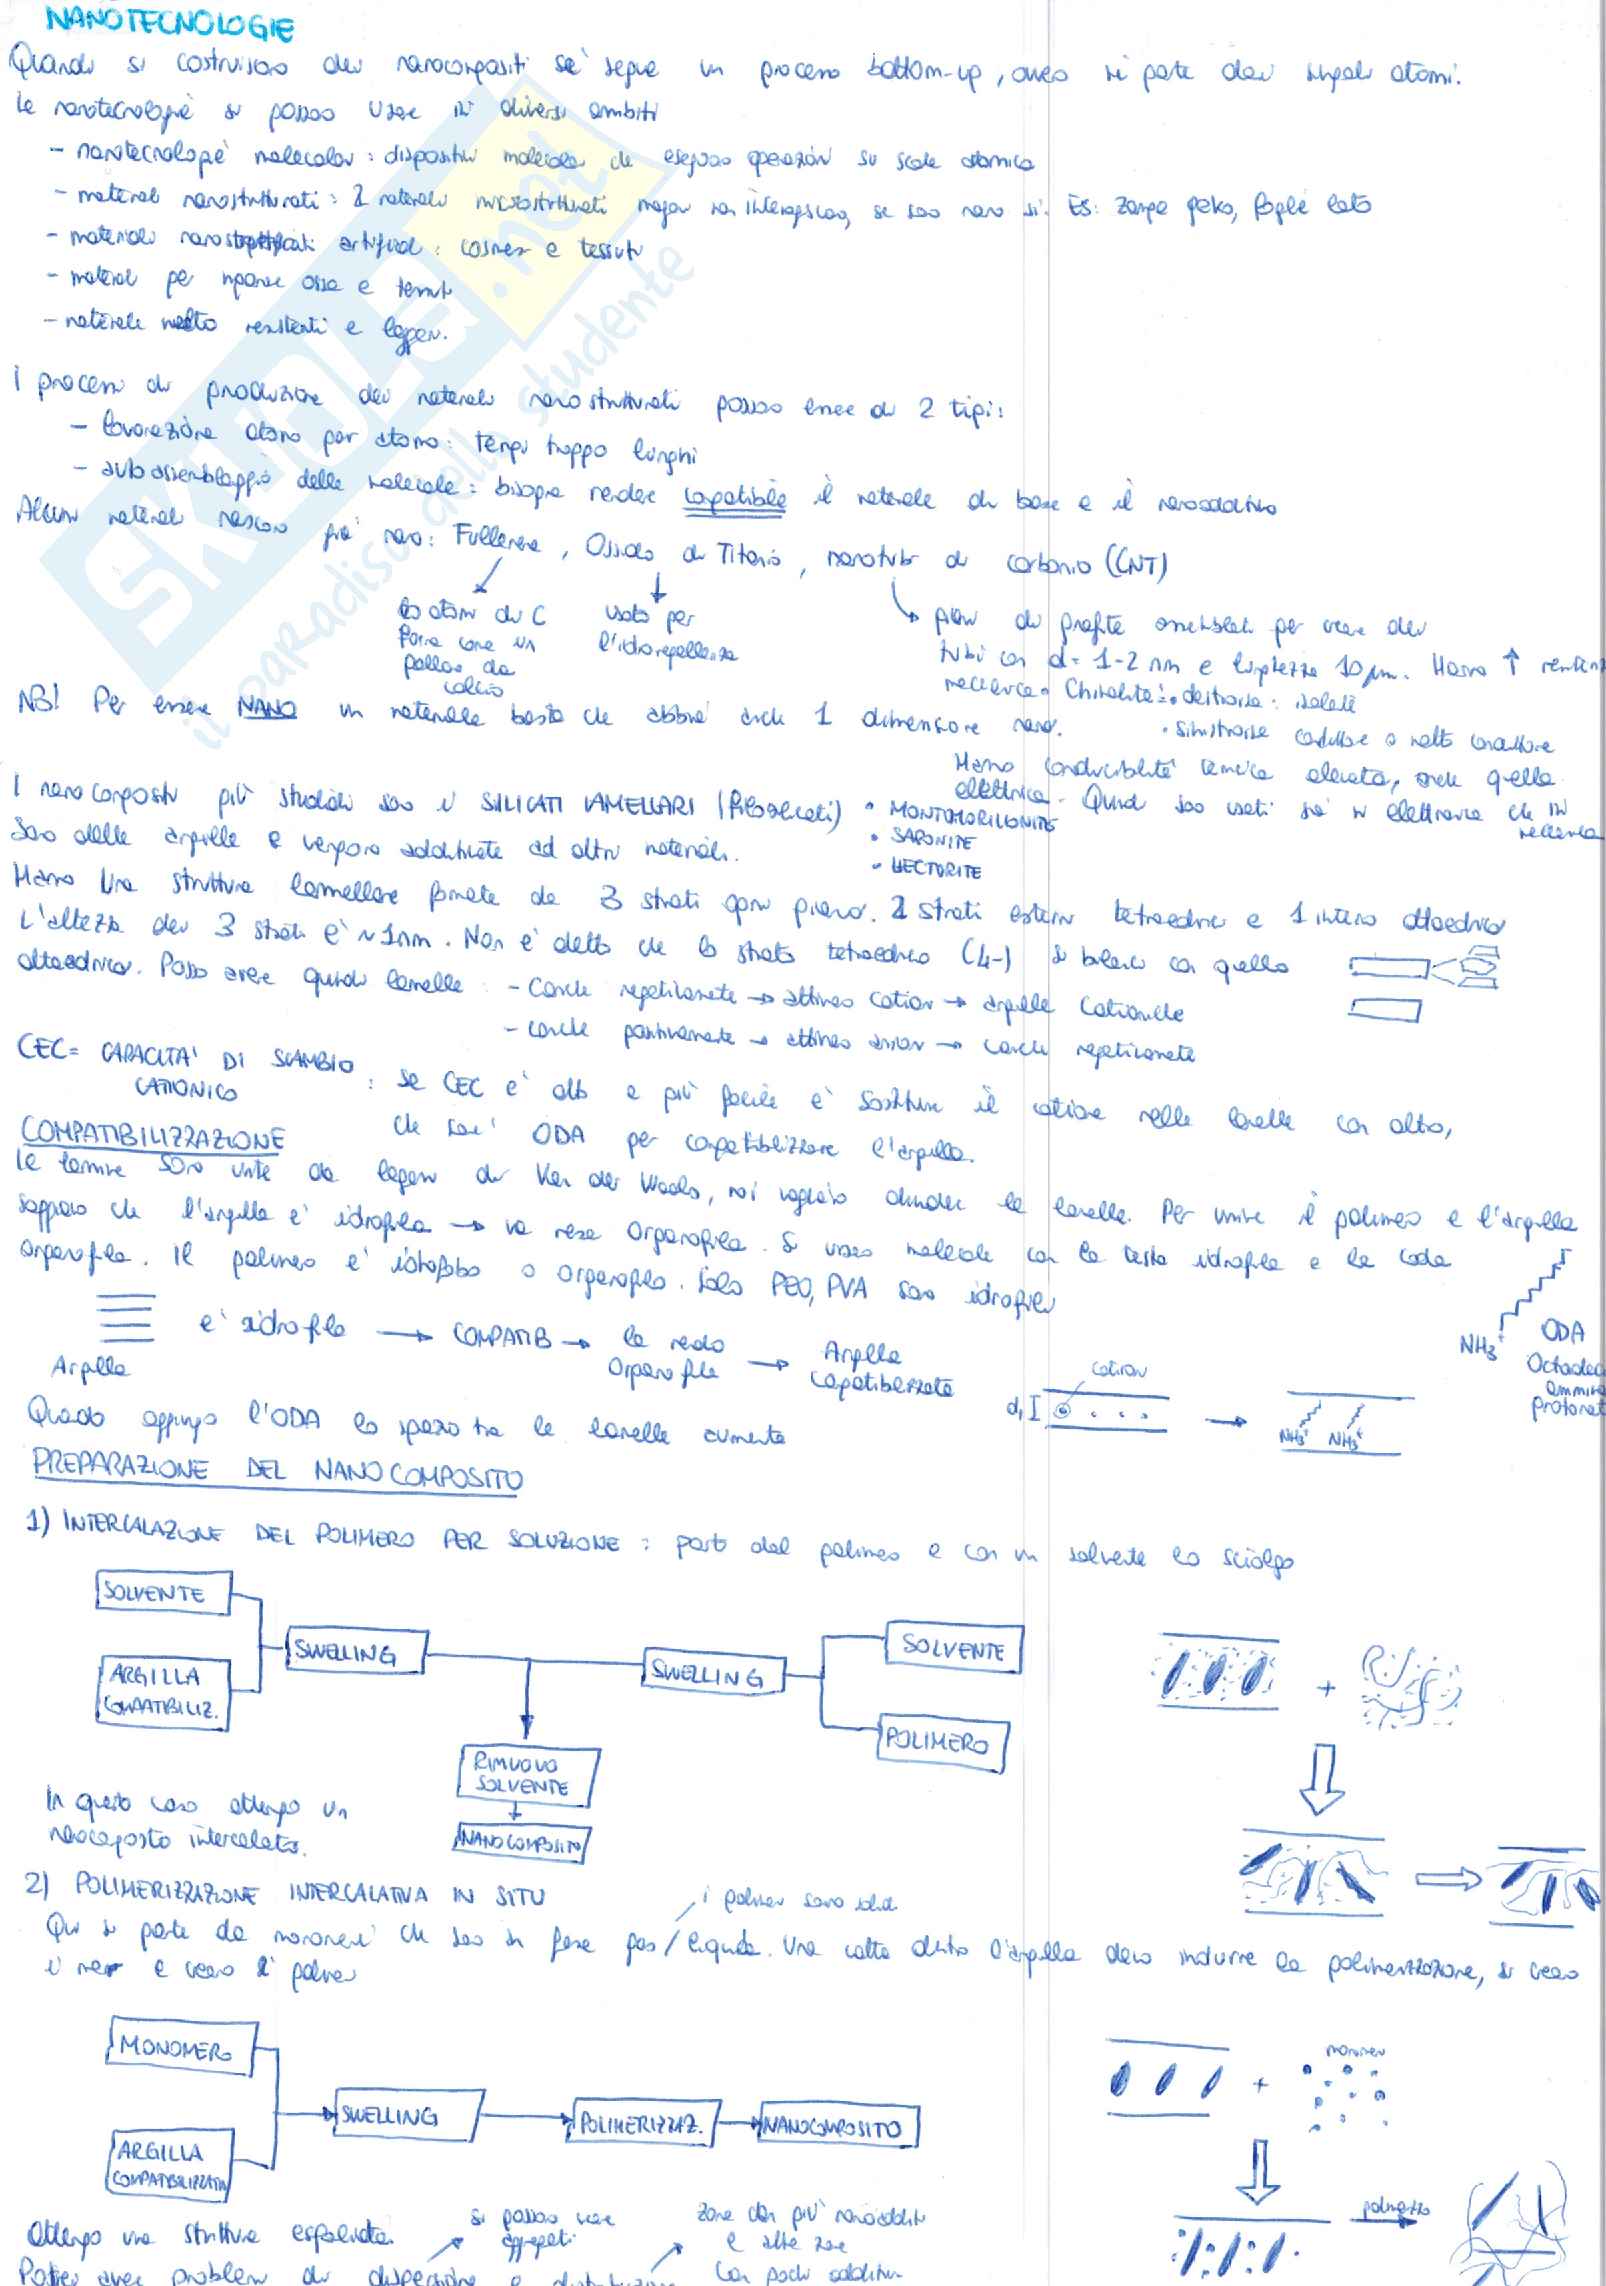 NANOTECNOLOGIE
Quando si costruiscono dei nanocompositi se segue un processo bottom-up, ovvero si parte dai singoli atomi.
Le nanotecnologie si possono usare in diversi ambiti
- nanotecnologie molecolari: dispositivi molecolari che eseguono operazioni su scala atomica
- materiali nanostrutturati: 2 materiali microstrutturati magari non interagiscono, se sono nano sì. Es: zampe geko, foglie loto
- materiali nanostrutturati artificiali: cosmesi e tessuti
- materiali per riparare ossa e tessuti
- materiali molto resistenti e leggeri.
I processi di produzione dei materiali nanostrutturati possono essere di 2 tipi:
- lavorazione atomo per atomo: tempi troppo lunghi
- autoassemblaggio delle molecole: bisogna rendere compatibile il materiale di base e il nanoadditivo
Alcuni materiali nascono già nano: Fullerene, Ossido di Titanio, nanotubi di carbonio (CNT)
60 atomi di C
forma come un
pallone da
calcio
usato per
l'idrorepellenza
piani di grafite assemblati per creare dei
tubi con d= 1-2 nm e lunghezza 10 µm. Hanno ↑ resistenza
meccanica. Chiralità: • destrorsa: isolante
• sinistrorsa conduttore o molto conduttore
Hanno conducibilità termica elevata, anche quella
elettrica. Quindi sono usati sia in elettronica che in
meccanica
NB! Per essere NANO un materiale basta che abbia anche 1 dimensione nano.
I nanocompositi più studiati sono i SILICATI LAMELLARI (Fillosilicati)
• MONTMORILLONITE
• SAPONITE
• HECTORITE
Sono delle argille e vengono additivate ad altri materiali.
Hanno una struttura lamellare formata da 3 strati ogni piano. 2 strati esterni tetraedrici e 1 interno ottaedrico
L'altezza dei 3 strati è ~1nm. Non è detto che lo strato tetraedrico (4-) si bilanci con quello
ottaedrico. Posso avere quindi lamelle: - cariche negativamente → attirano cationi → argille cationiche
- cariche positivamente → attirano anioni → cariche negativamente
CEC= CAPACITA' DI SCAMBIO
CATIONICO
: se CEC è alto e più facile è sostituire il catione nelle lamelle con altro,
che sarà ODA per compatibilizzare l'argilla.
COMPATIBILIZZAZIONE
Le lamine sono unite da legami di Van der Waals, noi vogliamo dividere le lamelle. Per unire il polimero e l'argilla
sappiamo che l'argilla è idrofila → va resa organofila. Si usano molecole con la testa idrofila e la coda
organofila. Il polimero è idrofobo o organofilo. Solo PEO, PVA sono idrofili
Argilla
è idrofila → COMPATIB → la rendo
organofila → Argilla
compatibilizzata
cationi
d₁
NH₃⁺ NH₃⁺
NH₃⁺
ODA
Octadec
ammina
protonat
Quando aggiungo l'ODA lo spazio tra le lamelle aumenta
PREPARAZIONE DEL NANOCOMPOSITO
1) INTERCALAZIONE DEL POLIMERO PER SOLUZIONE: parto dal polimero e con un solvente lo sciolgo
SOLVENTE
ARGILLA
COMPATIBILIZ.
SWELLING
SWELLING
SOLVENTE
POLIMERO
RIMUOVO
SOLVENTE
NANOCOMPOSITO
+
In questo caso ottengo un
nanocomposto intercalato.
2) POLIMERIZZAZIONE INTERCALATIVA IN SITU
i polimeri sono solidi
Qui si parte da monomeri che sono in fase gas/liquida. Una volta dentro l'argilla devo indurre la polimerizzazione, si creano
e creano i polimeri
MONOMERO
ARGILLA
COMPATIBILIZZATA
SWELLING
POLIMERIZZAZ.
NANOCOMPOSITO
monomeri
+
Ottengo una struttura esfoliata.
si possono creare
aggregati
zone con più nanoadditivi
e altre zone
con pochi additivi
Potrei avere problemi di dispersione e distribuzione
SKUOLA.net
il paradiso dello studente